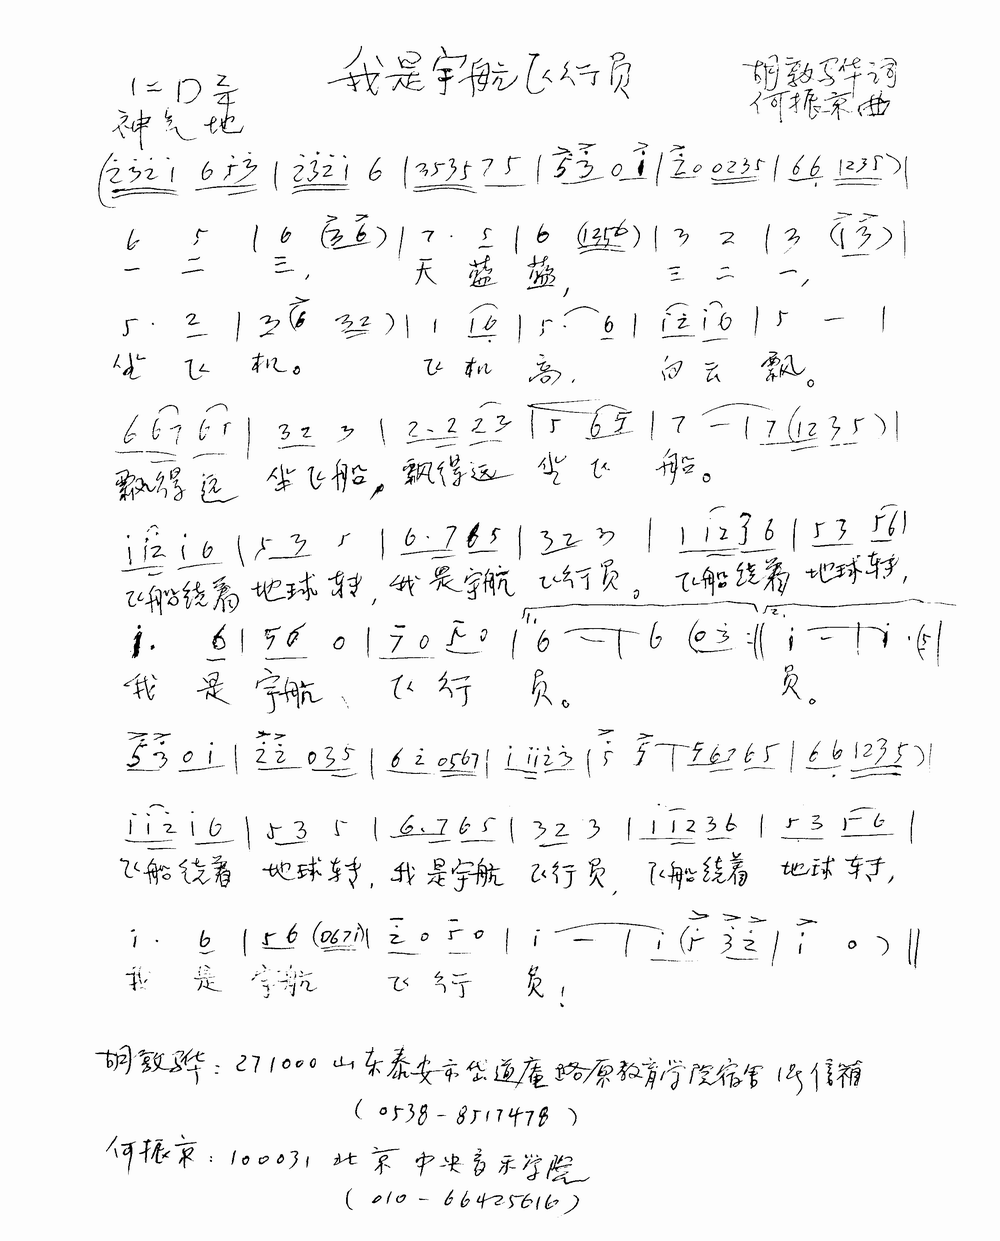 我是宇航飞行员
1=D 2/4
神气地
胡敦骅词
何振京曲
(2̇3̇2̇1̇ 65̇3̇ | 2̇3̇2̇1̇ 6 | 3535 75 | 5̇3̇ 0 1̇ | 2̇0 0235 | 66 1235) |
6 5 | 6 (36) | 7· 5 | 6 (1256) | 3 2 | 3 (13) |
一 二 三, 天 蓝 蓝, 三 二 一,
5· 2 | 3 (6 32) | 1 1̇6 | 5· 6 | 1̇2̇1̇6 | 5 — |
坐 飞 机。 飞 机 高, 白 云 飘。
667 65 | 32 3 | 2·2 23 | 5 65 | 7 — | 7 (1235) |
飘得远 坐飞船, 飘得远 坐飞 船。
1̇1̇2̇ 1̇6 | 53 5 | 6·765 | 32 3 | 11236 | 53 56 |
飞船绕着 地球转, 我是宇航 飞行员。 飞船绕着 地球转,
1̇· 6 | 56 0 | 50 50 | 1. 6 — | 6 (03̇ :‖ 2. 1̇ — | 1̇· (5 |
我 是 宇航 飞 行 员。 员。
5̇3̇ 0 1̇ | 2̇2̇ 035 | 62̇ 0567 | 1̇ 1̇1̇2̇3̇ | 5̇ 5̇ | 56765 | 66 1235) |
1̇1̇2̇ 1̇6 | 53 5 | 6·765 | 32 3 | 11236 | 53 56 |
飞船绕着 地球转, 我是宇航 飞行员, 飞船绕着 地球转,
1̇· 6 | 56 (0671̇) | 2̇0 50 | 1̇ — | 1̇ (5̇ 3̇2̇ | 1̇ 0 ) ‖
我 是 宇航 飞 行 员!
胡敦骅: 271000 山东泰安市岱道庵路原教育学院宿舍 1号信箱
(0538-8517478)
何振京: 100031 北京 中央音乐学院
(010-66425616)